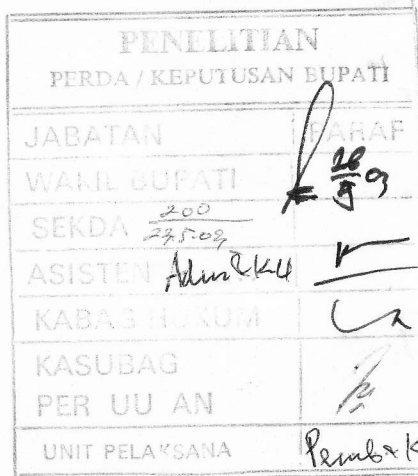 PENELITIAN
PERDA / KEPUTUSAN BUPATI
JABATAN PARAF
WAKIL BUPATI
SEKDA 200
27.5.09
ASISTEN
KABAG HUKUM
KASUBAG
PER UU AN
UNIT PELAKSANA